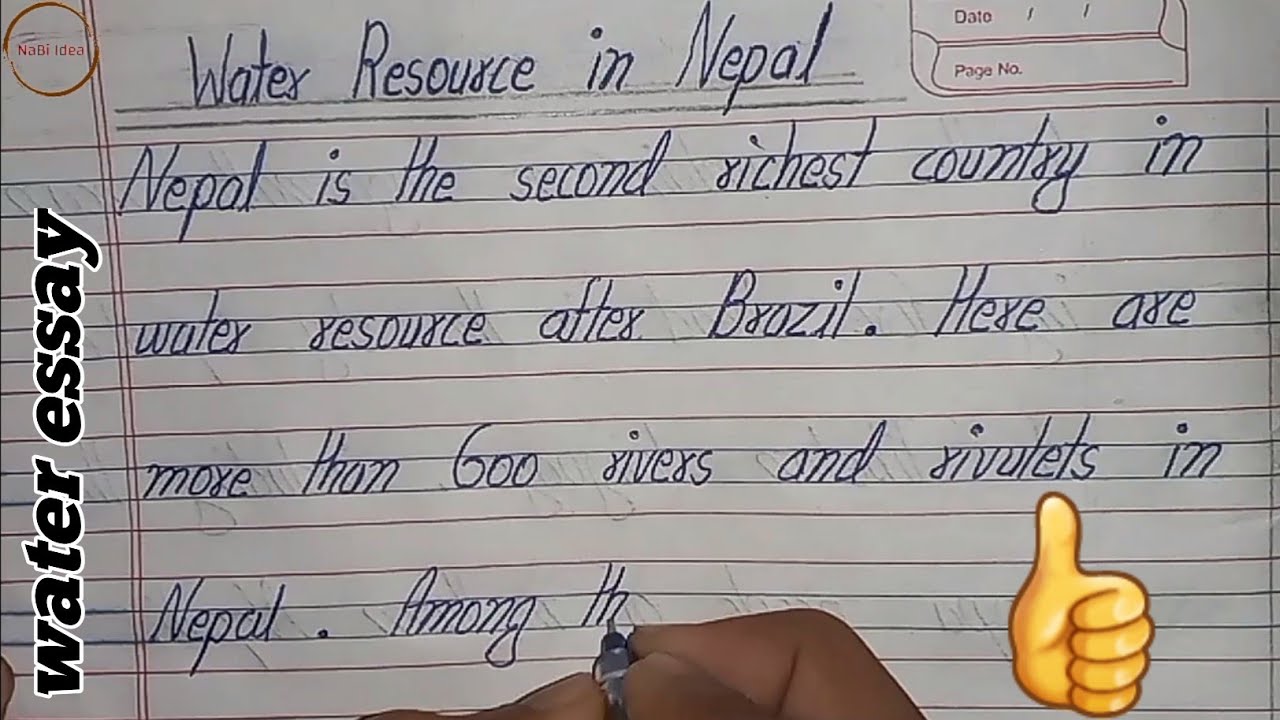 NaBi Idea
Date / /
Page No.
Water Resource in Nepal
Nepal is the second richest country in
water resource after Brazil. Here are
more than 600 rivers and rivulets in
Nepal. Among th
water essay